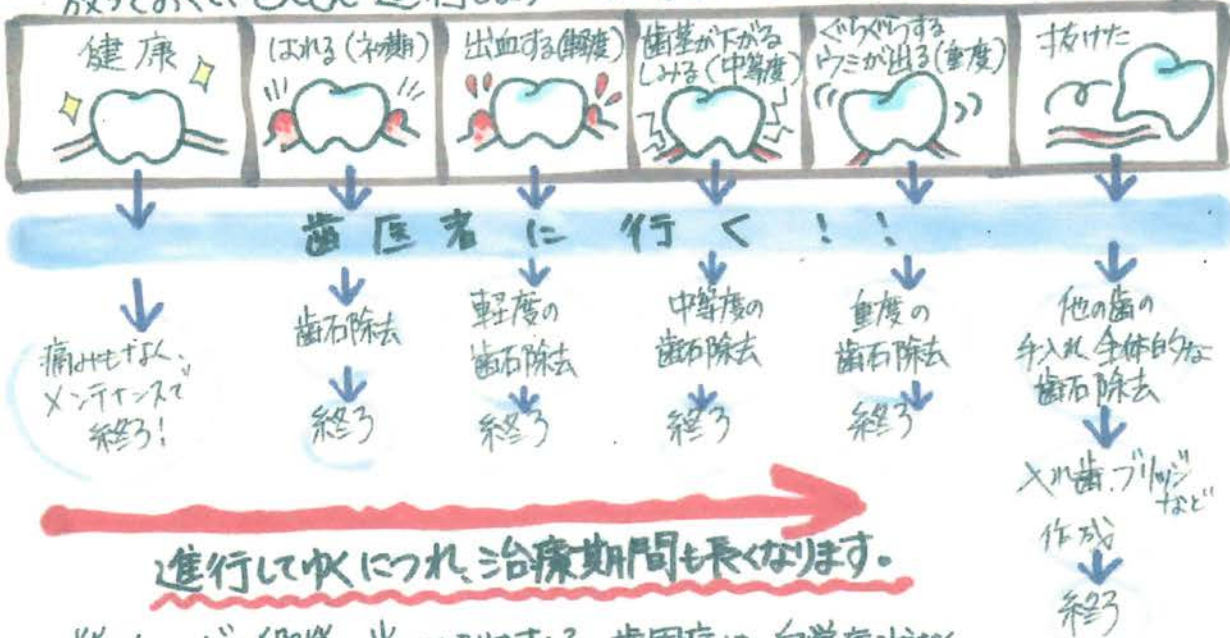 放っておくと、どんどん進行します
健康
はれる(初期)
出血する(軽度)
歯茎が下がる
しみる(中等度)
ぐらぐらする
ウミが出る(重度)
抜けた
歯医者に行く!!
痛みもなく、
メンテナンスで
終了!
歯石除去
終了
軽度の
歯石除去
終了
中等度の
歯石除去
終了
重度の
歯石除去
終了
他の歯の
手入れ、全体的な
歯石除去
入れ歯、ブリッジ
など
作成
終了
進行してゆくにつれ、治療期間も長くなります。
歯周病は、自覚症状がなく